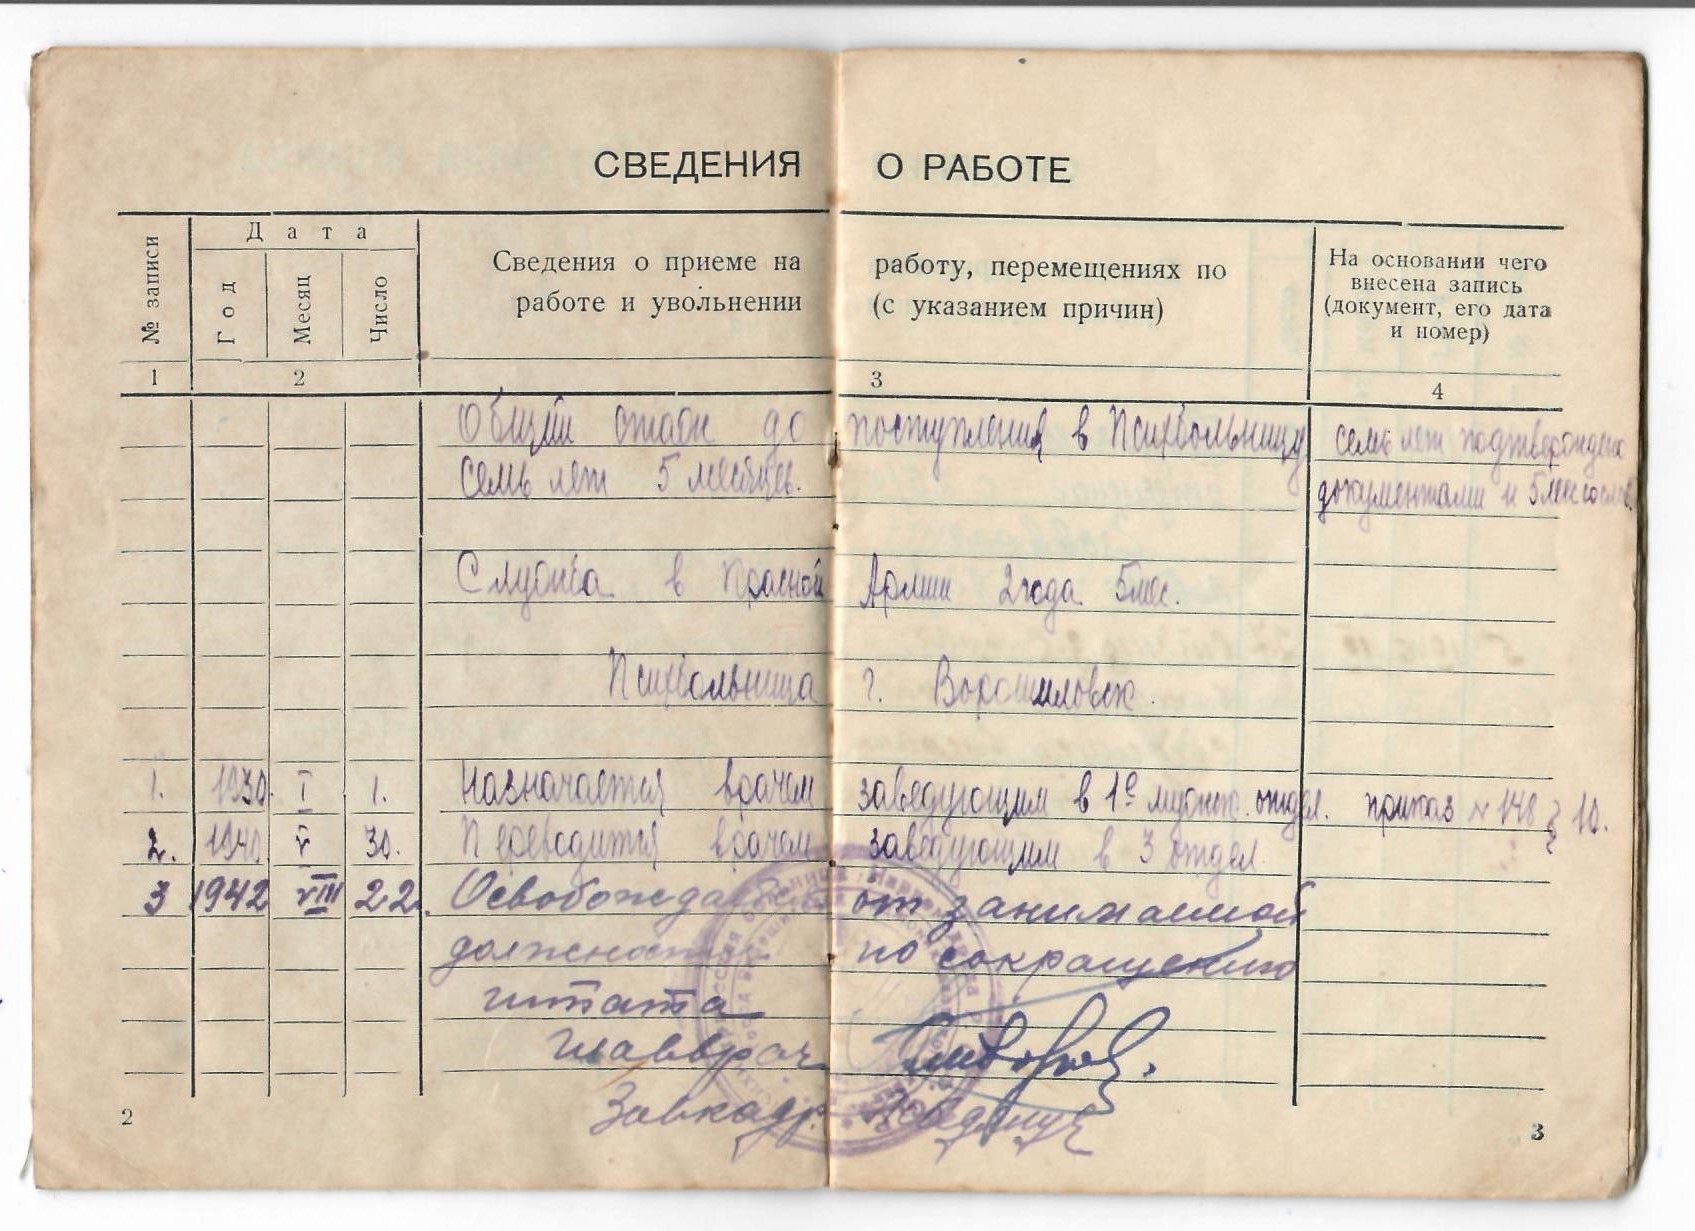 СВЕДЕНИЯ О РАБОТЕ
№ записи
Дата
Год
Месяц
Число
Сведения о приеме на работу, перемещениях по
работе и увольнении (с указанием причин)
На основании чего
внесена запись
(документ, его дата
и номер)
1 2 3 4
Общий стаж до поступления в Психбольницу семь лет подтвержден
семь лет 5 месяцев. документами и 5 мес со слов.
Служба в Красной Армии 2 года 5 мес.
Психбольница г. Ворошиловск.
1. 1930 I 1. Назначается врачем заведующим в 1е мужск. отдел. приказ № 148 10.
2. 1940 V 30. Переводится врачем заведующим в 3 отдел.
3 1942 VIII 22. Освобождается от занимаемой
должности по сокращению
штата
Главврач
Завкадр.
2
3